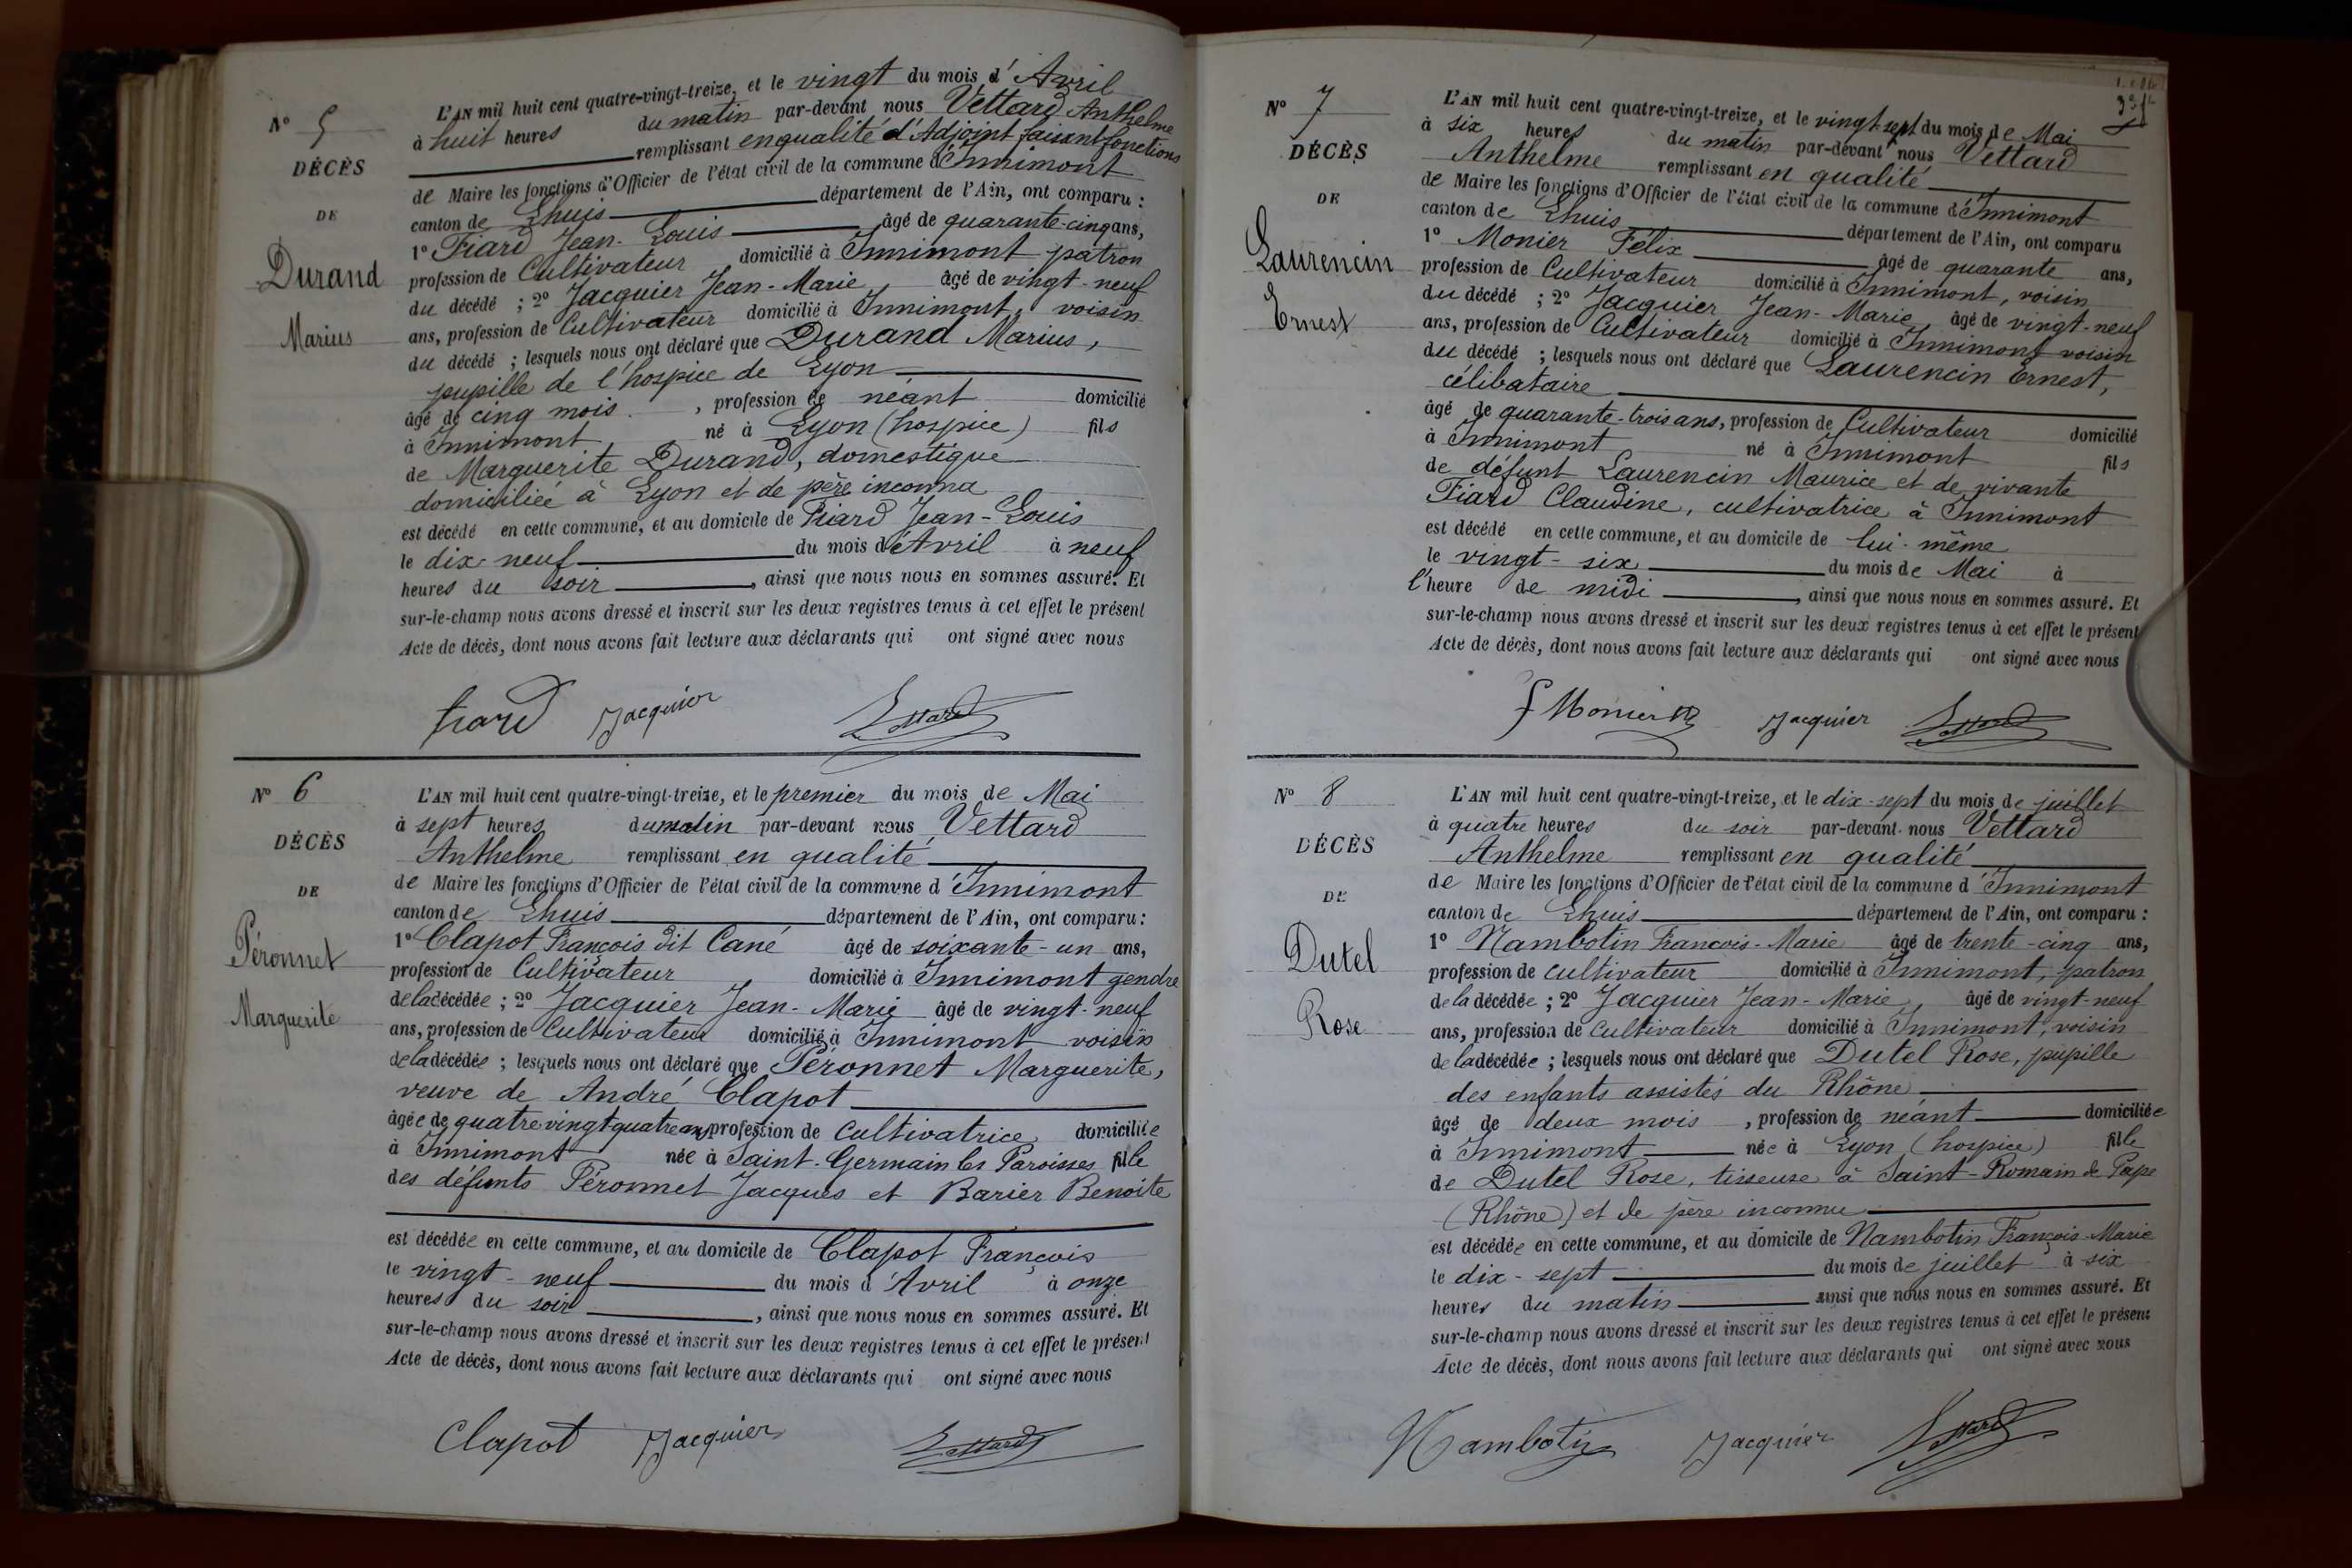 N° 5
DÉCÈS
DE
Durand
Marius
L'AN mil huit cent quatre-vingt-treize, et le vingt du mois d'Avril
à huit heures du matin par-devant nous Vettard Anthelme
remplissant en qualité d'Adjoint faisant fonctions
de Maire les fonctions d'Officier de l'état civil de la commune d'Innimont
canton de Lhuis département de l'Ain, ont comparu :
1° Fiard Jean-Louis âgé de quarante-cinq ans,
profession de Cultivateur domicilié à Innimont patron
du décédé ; 2° Jacquier Jean-Marie âgé de vingt-neuf
ans, profession de Cultivateur domicilié à Innimont, voisin
du décédé ; lesquels nous ont déclaré que Durand Marius,
pupille de l'hospice de Lyon
âgé de cinq mois, profession de néant domicilié
à Innimont né à Lyon (hospice) fils
de Marguerite Durand, domestique
domiciliée à Lyon et de père inconnu
est décédé en cette commune, et au domicile de Fiard Jean-Louis
le dix-neuf du mois d'Avril à neuf
heures du soir, ainsi que nous nous en sommes assuré. Et
sur-le-champ nous avons dressé et inscrit sur les deux registres tenus à cet effet le présent
Acte de décès, dont nous avons fait lecture aux déclarants qui ont signé avec nous
fiard Jacquier Vettard
N° 6
DÉCÈS
DE
Péronnet
Marguerite
L'AN mil huit cent quatre-vingt-treize, et le premier du mois de Mai
à sept heures du matin par-devant nous Vettard
Anthelme remplissant en qualité
de Maire les fonctions d'Officier de l'état civil de la commune d'Innimont
canton de Lhuis département de l'Ain, ont comparu :
1° Clapot François dit Cané âgé de soixante-un ans,
profession de Cultivateur domicilié à Innimont gendre
de la décédée ; 2° Jacquier Jean-Marie âgé de vingt-neuf
ans, profession de Cultivateur domicilié à Innimont voisin
de la décédée ; lesquels nous ont déclaré que Péronnet Marguerite,
veuve de André Clapot
âgée de quatre vingt quatre ans, profession de cultivatrice domiciliée
à Innimont née à Saint-Germain les Paroisses fille
des défunts Péronnet Jacques et Barier Benoite
est décédée en cette commune, et au domicile de Clapot François
le vingt-neuf du mois d'Avril à onze
heures du soir, ainsi que nous nous en sommes assuré. Et
sur-le-champ nous avons dressé et inscrit sur les deux registres tenus à cet effet le présent
Acte de décès, dont nous avons fait lecture aux déclarants qui ont signé avec nous
Clapot Jacquier Vettard
N° 7
DÉCÈS
DE
Laurencin
Ernest
L'AN mil huit cent quatre-vingt-treize, et le vingt-sept du mois de Mai
à six heures du matin par-devant nous Vettard
Anthelme remplissant en qualité
de Maire les fonctions d'Officier de l'état civil de la commune d'Innimont
canton de Lhuis département de l'Ain, ont comparu
1° Monier Félix âgé de quarante ans,
profession de Cultivateur domicilié à Innimont, voisin
du décédé ; 2° Jacquier Jean-Marie âgé de vingt-neuf
ans, profession de Cultivateur domicilié à Innimont voisin
du décédé ; lesquels nous ont déclaré que Laurencin Ernest,
célibataire
âgé de quarante-trois ans, profession de Cultivateur domicilié
à Innimont né à Innimont fils
de défunt Laurencin Maurice et de vivante
Fiard Claudine, cultivatrice à Innimont
est décédé en cette commune, et au domicile de lui-même
le vingt-six du mois de Mai à
l'heure de midi, ainsi que nous nous en sommes assuré. Et
sur-le-champ nous avons dressé et inscrit sur les deux registres tenus à cet effet le présent
Acte de décès, dont nous avons fait lecture aux déclarants qui ont signé avec nous
f Monier Jacquier Vettard
N° 8
DÉCÈS
DE
Dutel
Rose
L'AN mil huit cent quatre-vingt-treize, et le dix-sept du mois de juillet
à quatre heures du soir par-devant nous Vettard
Anthelme remplissant en qualité
de Maire les fonctions d'Officier de l'état civil de la commune d'Innimont
canton de Lhuis département de l'Ain, ont comparu :
1° Nambotin François-Marie âgé de trente-cinq ans,
profession de cultivateur domicilié à Innimont, patron
de la décédée ; 2° Jacquier Jean-Marie, âgé de vingt-neuf
ans, profession de Cultivateur domicilié à Innimont, voisin
de la décédée ; lesquels nous ont déclaré que Dutel Rose, pupille
des enfants assistés du Rhône
âgé de deux mois, profession de néant domiciliée
à Innimont née à Lyon (hospice) fille
de Dutel Rose, tisseuse à Saint-Romain de Pape
(Rhône) et de père inconnu
est décédée en cette commune, et au domicile de Nambotin François-Marie
le dix-sept du mois de juillet à six
heures du matin ainsi que nous nous en sommes assuré. Et
sur-le-champ nous avons dressé et inscrit sur les deux registres tenus à cet effet le présent
Acte de décès, dont nous avons fait lecture aux déclarants qui ont signé avec nous
Nambotin Jacquier Vettard